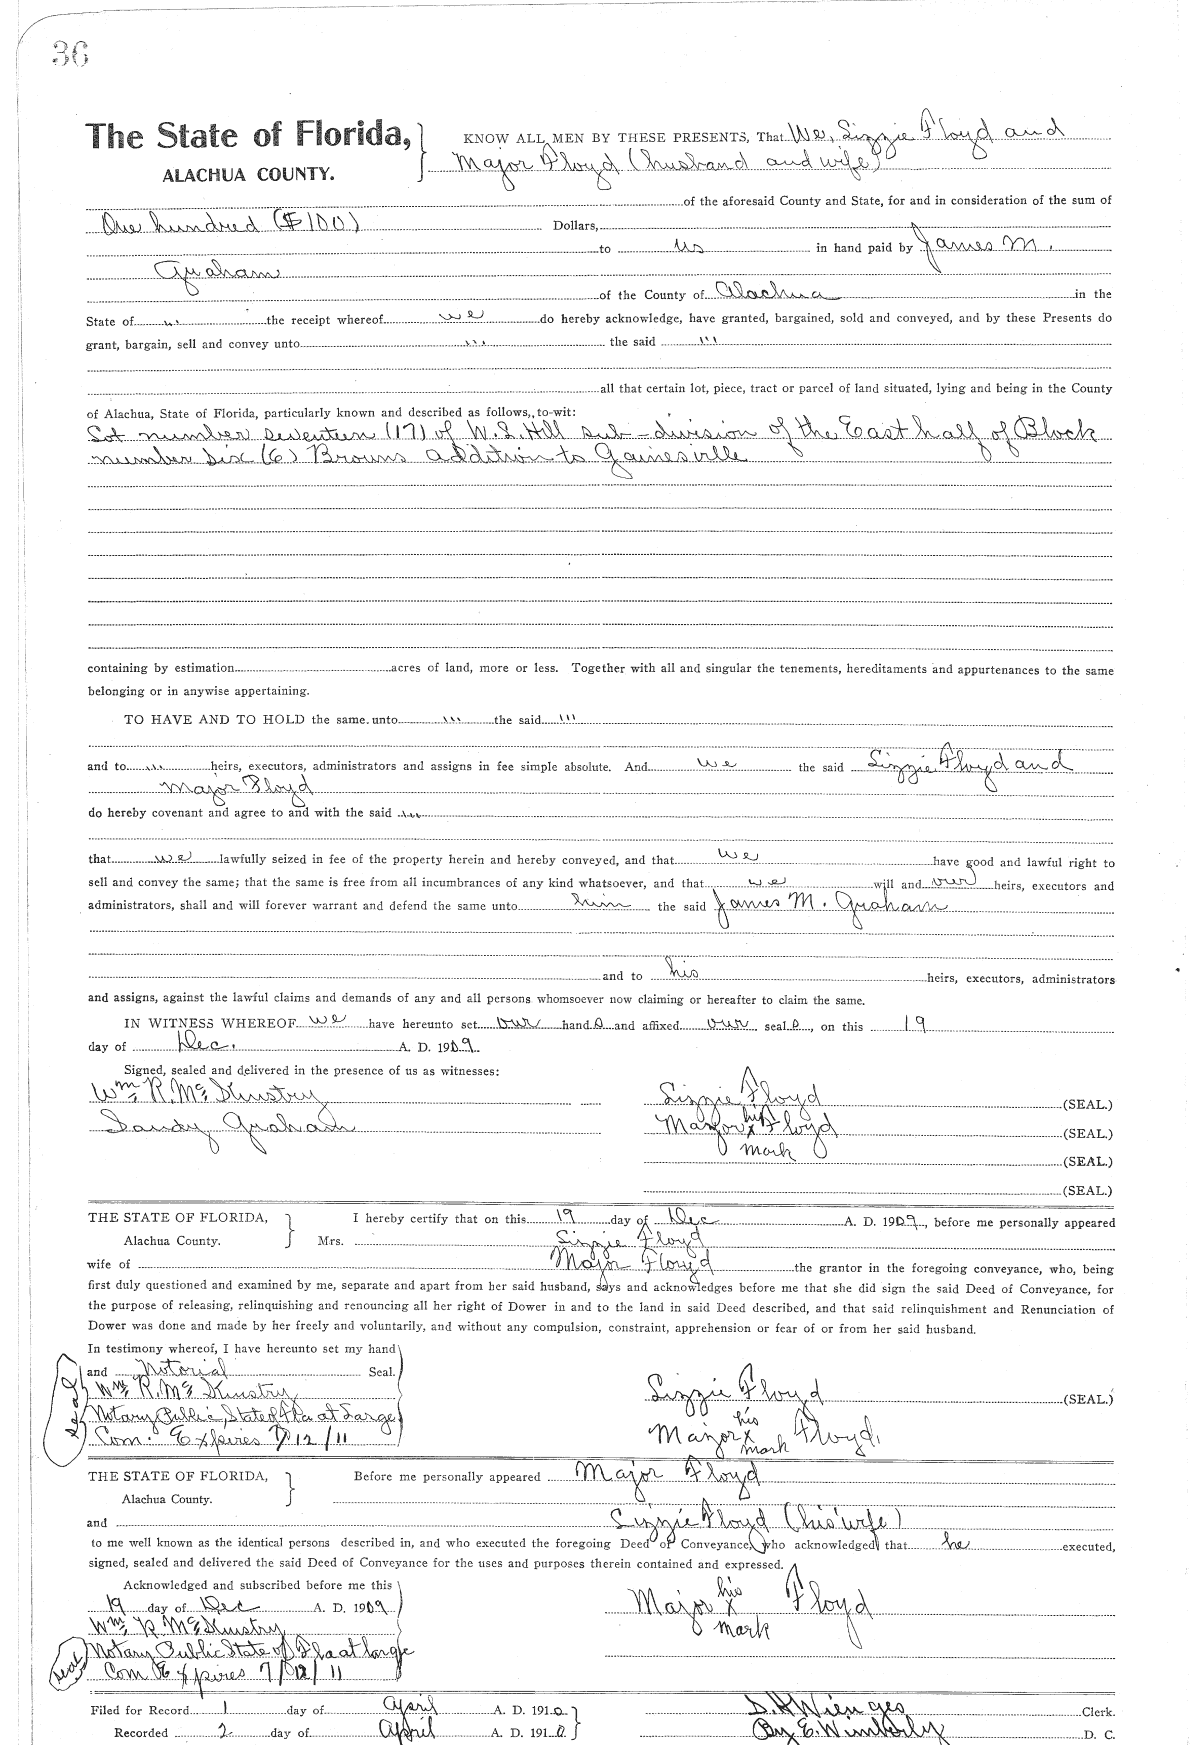 36
The State of Florida, KNOW ALL MEN BY THESE PRESENTS, That We, Lizzie Floyd and
ALACHUA COUNTY. Major Floyd (husband and wife)
of the aforesaid County and State, for and in consideration of the sum of
One hundred ($100) Dollars,
to us in hand paid by James M.
Graham
of the County of Alachua in the
State of " the receipt whereof we do hereby acknowledge, have granted, bargained, sold and conveyed, and by these Presents do
grant, bargain, sell and convey unto ''' the said '''
all that certain lot, piece, tract or parcel of land situated, lying and being in the County
of Alachua, State of Florida, particularly known and described as follows, to-wit:
Lot number seventeen (17) of W.L. Hill sub-division of the East half of Block
number six (6) Browns addition to Gainesville
containing by estimation acres of land, more or less. Together with all and singular the tenements, hereditaments and appurtenances to the same
belonging or in anywise appertaining.
TO HAVE AND TO HOLD the same unto ''' the said '''
and to ''' heirs, executors, administrators and assigns in fee simple absolute. And we the said Lizzie Floyd and
Major Floyd
do hereby covenant and agree to and with the said '''
that we lawfully seized in fee of the property herein and hereby conveyed, and that we have good and lawful right to
sell and convey the same; that the same is free from all incumbrances of any kind whatsoever, and that we will and our heirs, executors and
administrators, shall and will forever warrant and defend the same unto him the said James M. Graham
and to his heirs, executors, administrators
and assigns, against the lawful claims and demands of any and all persons whomsoever now claiming or hereafter to claim the same.
IN WITNESS WHEREOF we have hereunto set our hands and affixed our seals, on this 19
day of Dec. A. D. 1909
Signed, sealed and delivered in the presence of us as witnesses:
Wm R. McKinstry Lizzie Floyd (SEAL.)
Sandy Graham Major his x mark Floyd (SEAL.)
(SEAL.)
(SEAL.)
THE STATE OF FLORIDA, I hereby certify that on this 19 day of Dec A. D. 1909, before me personally appeared
Alachua County. Mrs. Lizzie Floyd
wife of Major Floyd the grantor in the foregoing conveyance, who, being
first duly questioned and examined by me, separate and apart from her said husband, says and acknowledges before me that she did sign the said Deed of Conveyance, for
the purpose of releasing, relinquishing and renouncing all her right of Dower in and to the land in said Deed described, and that said relinquishment and Renunciation of
Dower was done and made by her freely and voluntarily, and without any compulsion, constraint, apprehension or fear of or from her said husband.
In testimony whereof, I have hereunto set my hand
and Notorial Seal.
seal Wm R. McKinstry Lizzie Floyd (SEAL.)
Notary Public, State of Fla at Large
Com. Expires 7/12/11 Major his x mark Floyd,
THE STATE OF FLORIDA, Before me personally appeared Major Floyd
Alachua County.
and Lizzie Floyd (his wife)
to me well known as the identical persons described in, and who executed the foregoing Deed of Conveyance, who acknowledged that he executed,
signed, sealed and delivered the said Deed of Conveyance for the uses and purposes therein contained and expressed.
Acknowledged and subscribed before me this
19 day of Dec A. D. 1909 Major his x mark Floyd
Wm R McKinstry
seal Notary Public State of Fla at large
Com Expires 7/12/11
Filed for Record 1 day of April A. D. 1910 S. H. Wienges Clerk.
Recorded 2 day of April A. D. 1910 By E. Wimberly D. C.